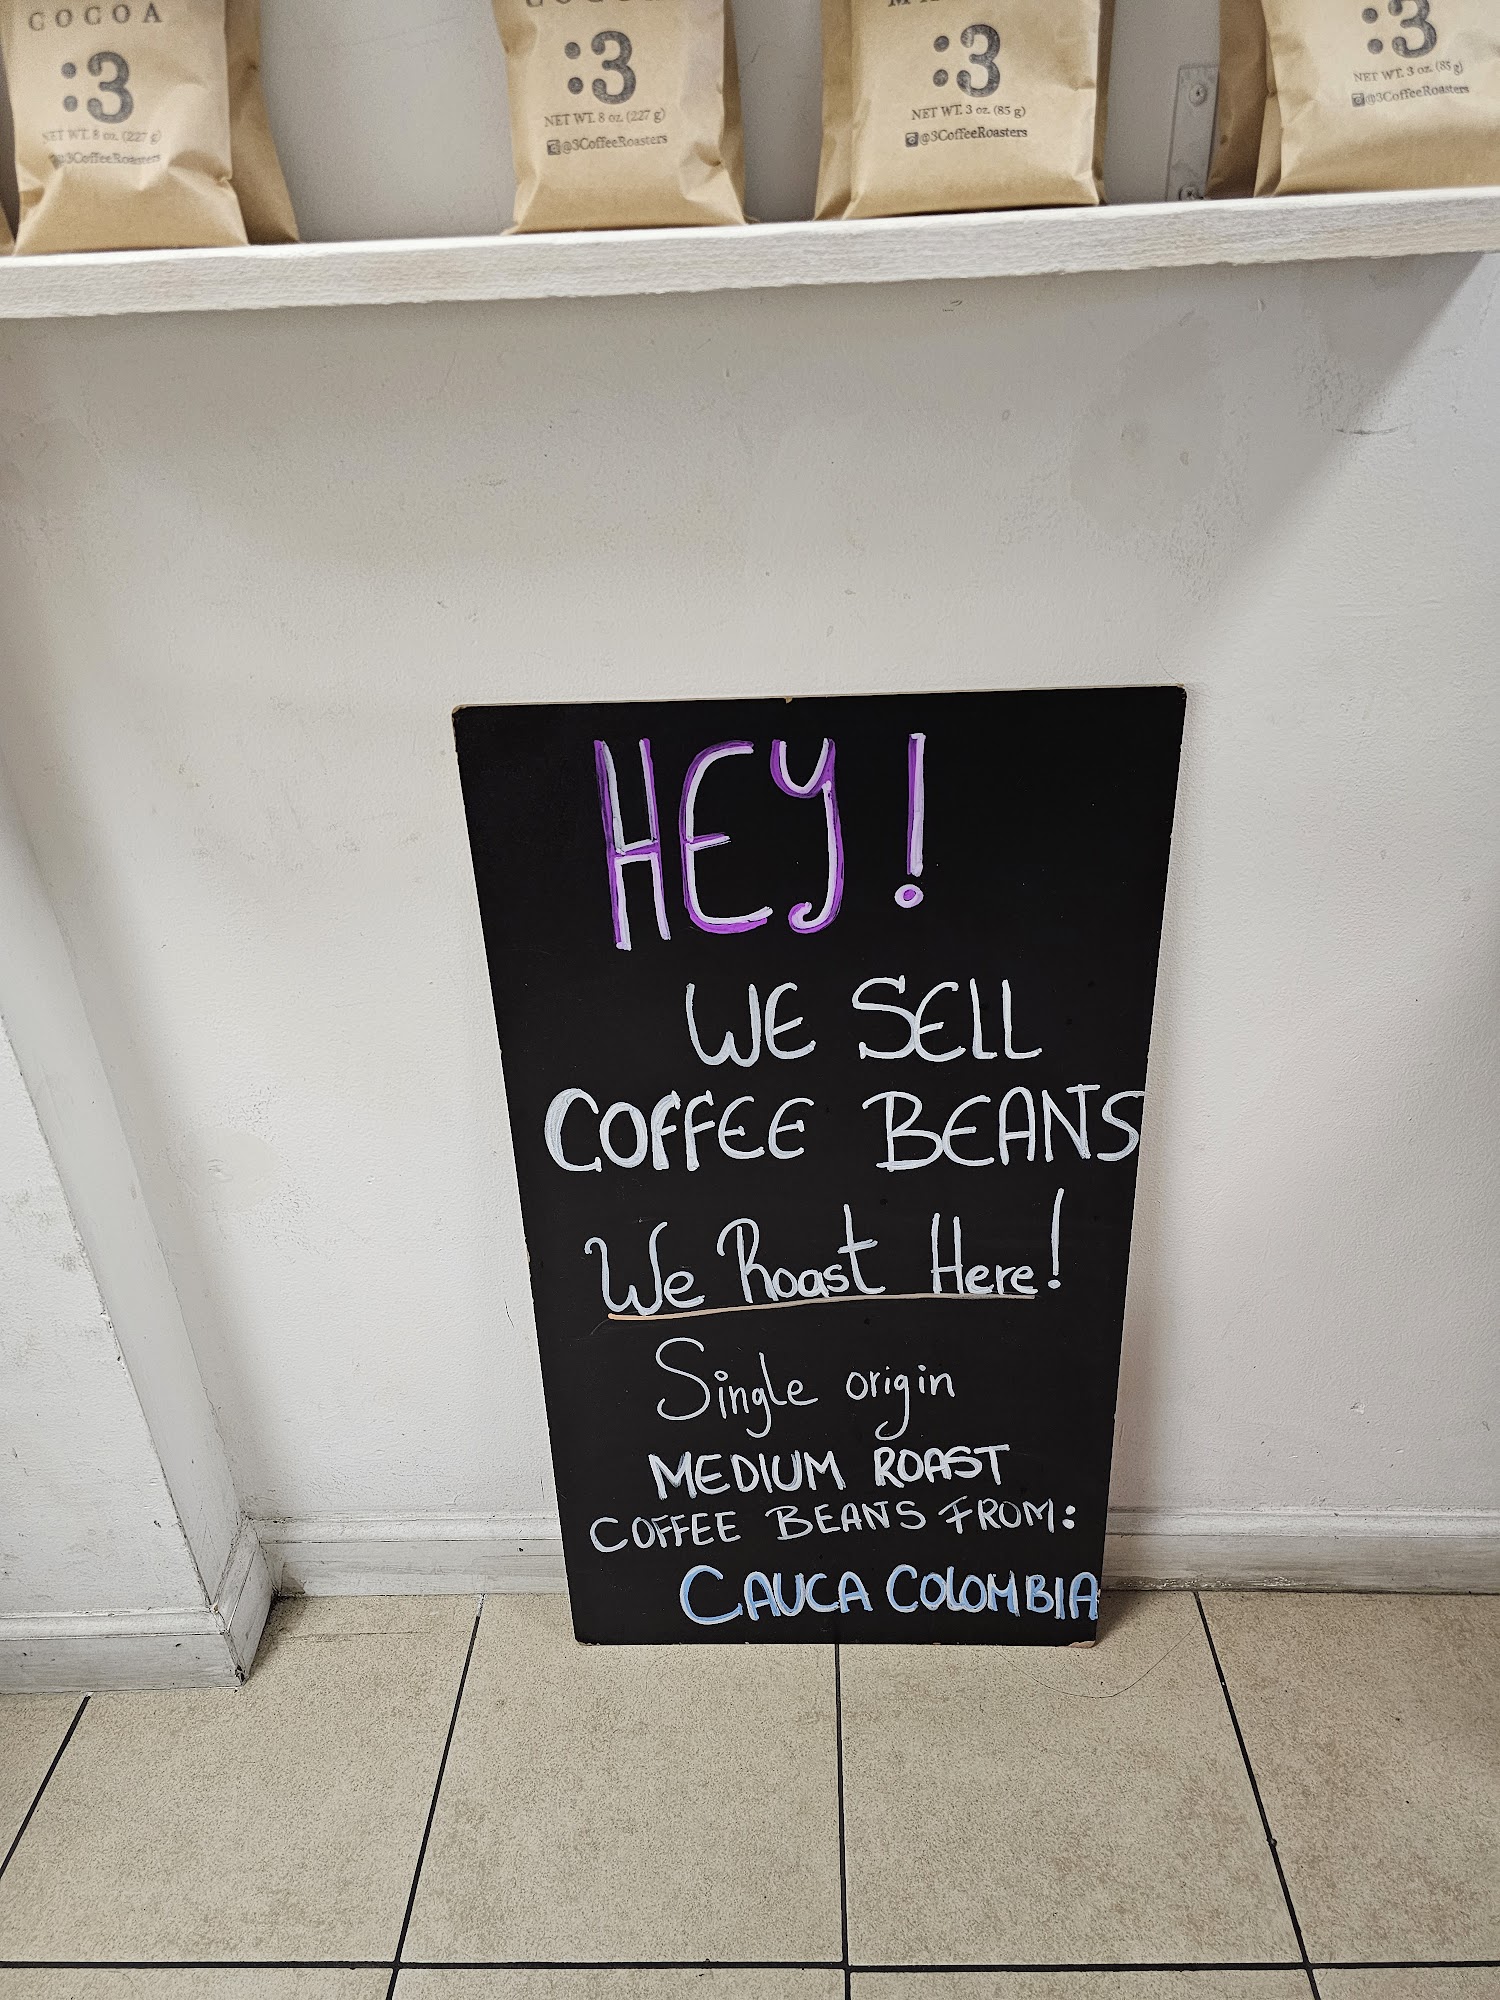 COCOA
:3
NET WT. 8 oz. (227 g)
@3CoffeeRoasters
:3
NET WT. 8 oz. (227 g)
@3CoffeeRoasters
:3
NET WT. 3 oz. (85 g)
@3CoffeeRoasters
:3
NET WT. 3 oz. (85 g)
@3CoffeeRoasters
HEY!
WE SELL
COFFEE BEANS
We Roast Here!
Single origin
MEDIUM ROAST
COFFEE BEANS FROM:
CAUCA COLOMBIA